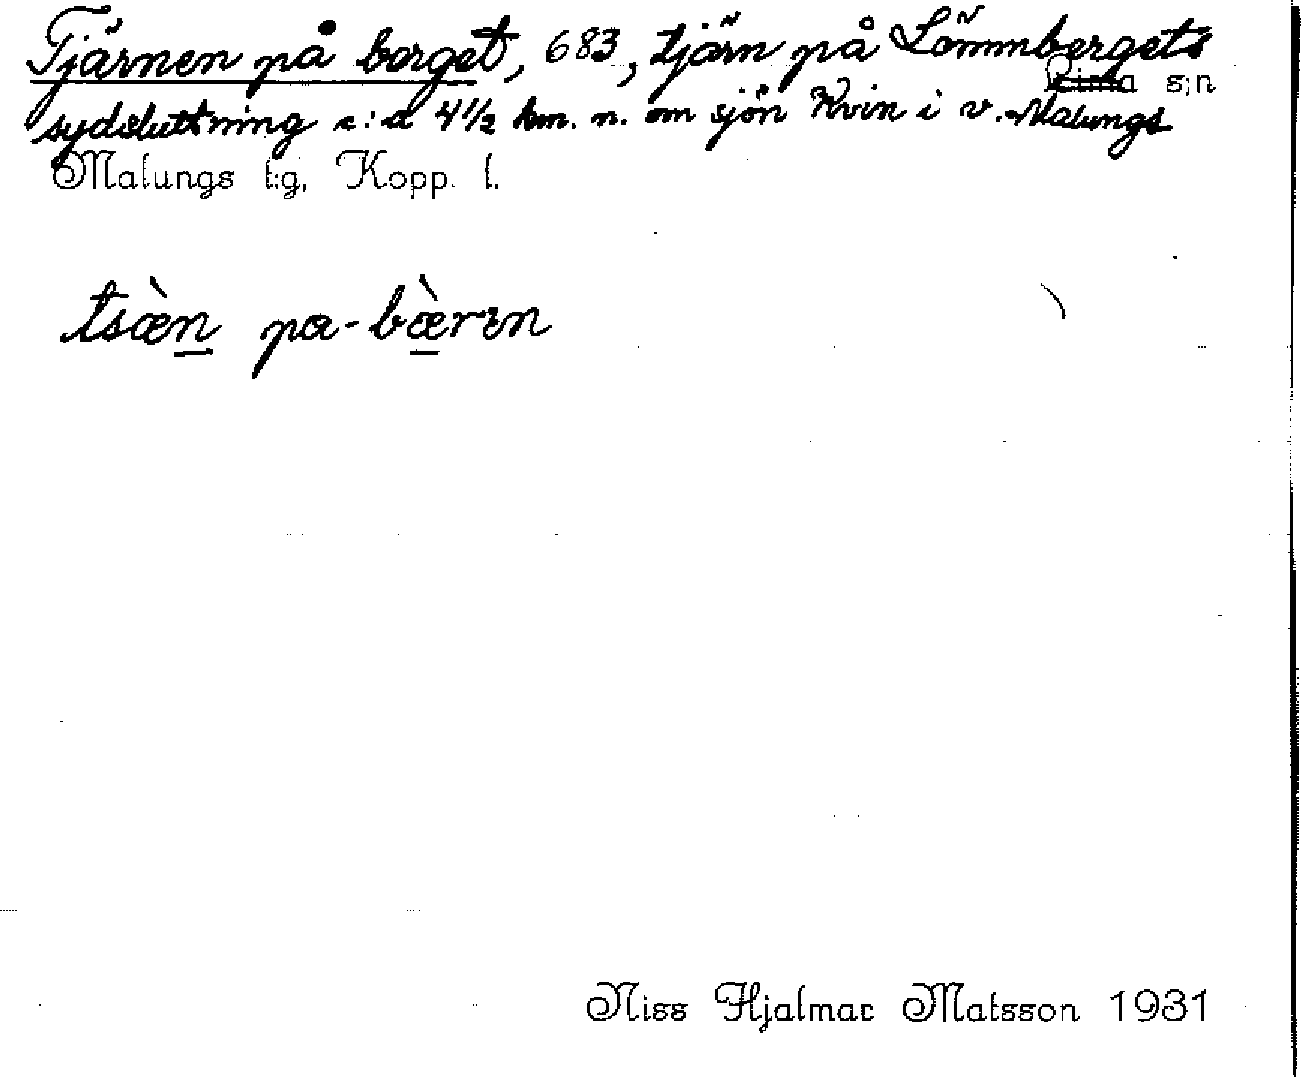 Tjärnen på berget, 683, tjärn på Lömmbergets
Lima s:n
sydsluttning c:a 4 1/2 km. n. om sjön Kvin i v. Malungs
Malungs t:g, Kopp. l.
tsæ̀n pa-bæ̀rɪn
Niss Hjalmar Matsson 1931